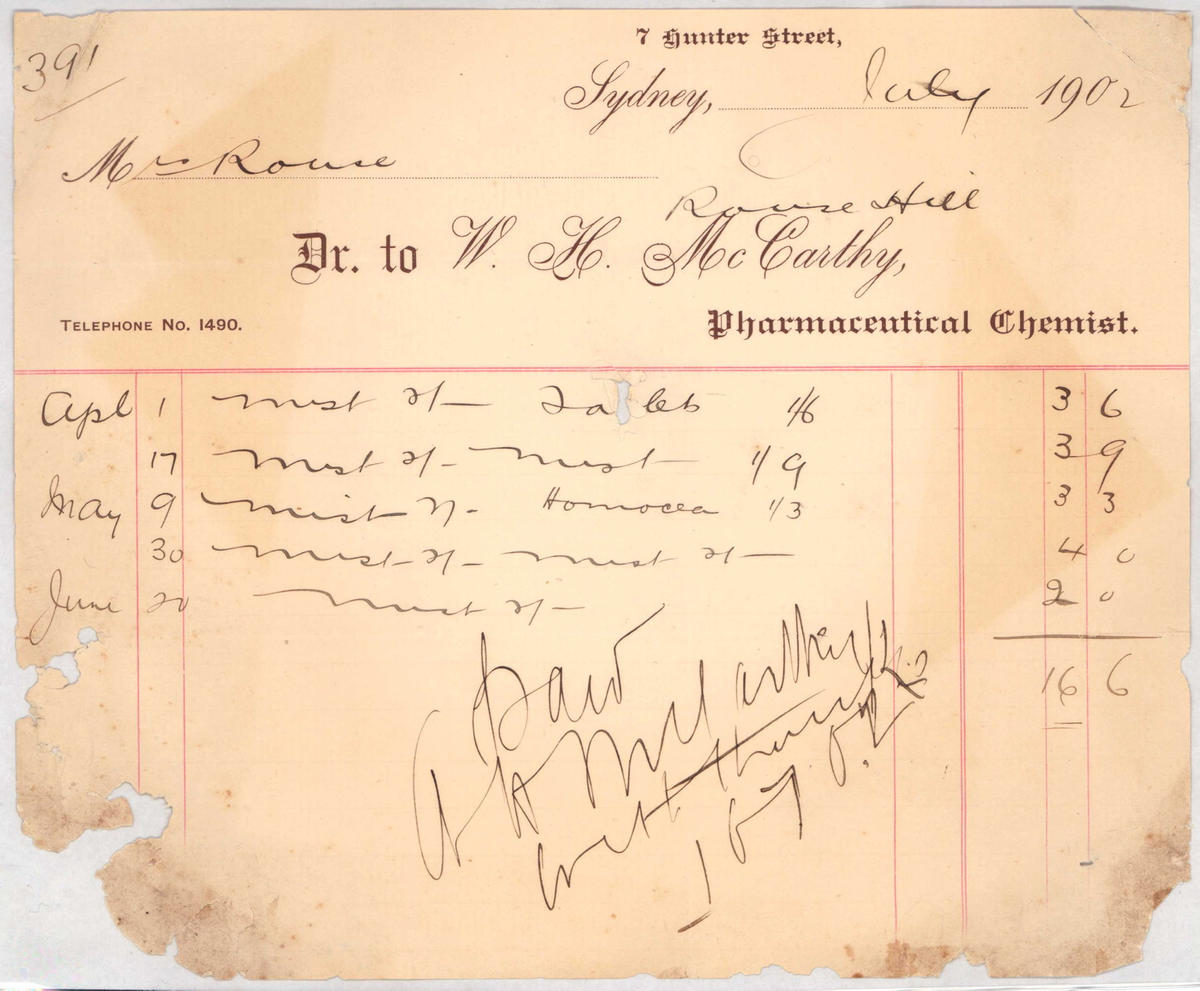 391
7 Hunter Street,
Sydney, July 1902
Mrs Rouse
Rouse Hill
Dr. to W. H. McCarthy,
Telephone No. 1490.
Pharmaceutical Chemist.
Apl 1 Mist 2/- Tablets 1/6 3 6
17 Mist 2/- Mist 1/9 3 9
May 9 Mist 2/- Homocea 1/3 3 3
30 Mist 2/- Mist 2/- 4 0
June 20 Mist 2/- 2 0
16 6
Paid
W H McCarthy
with thanks